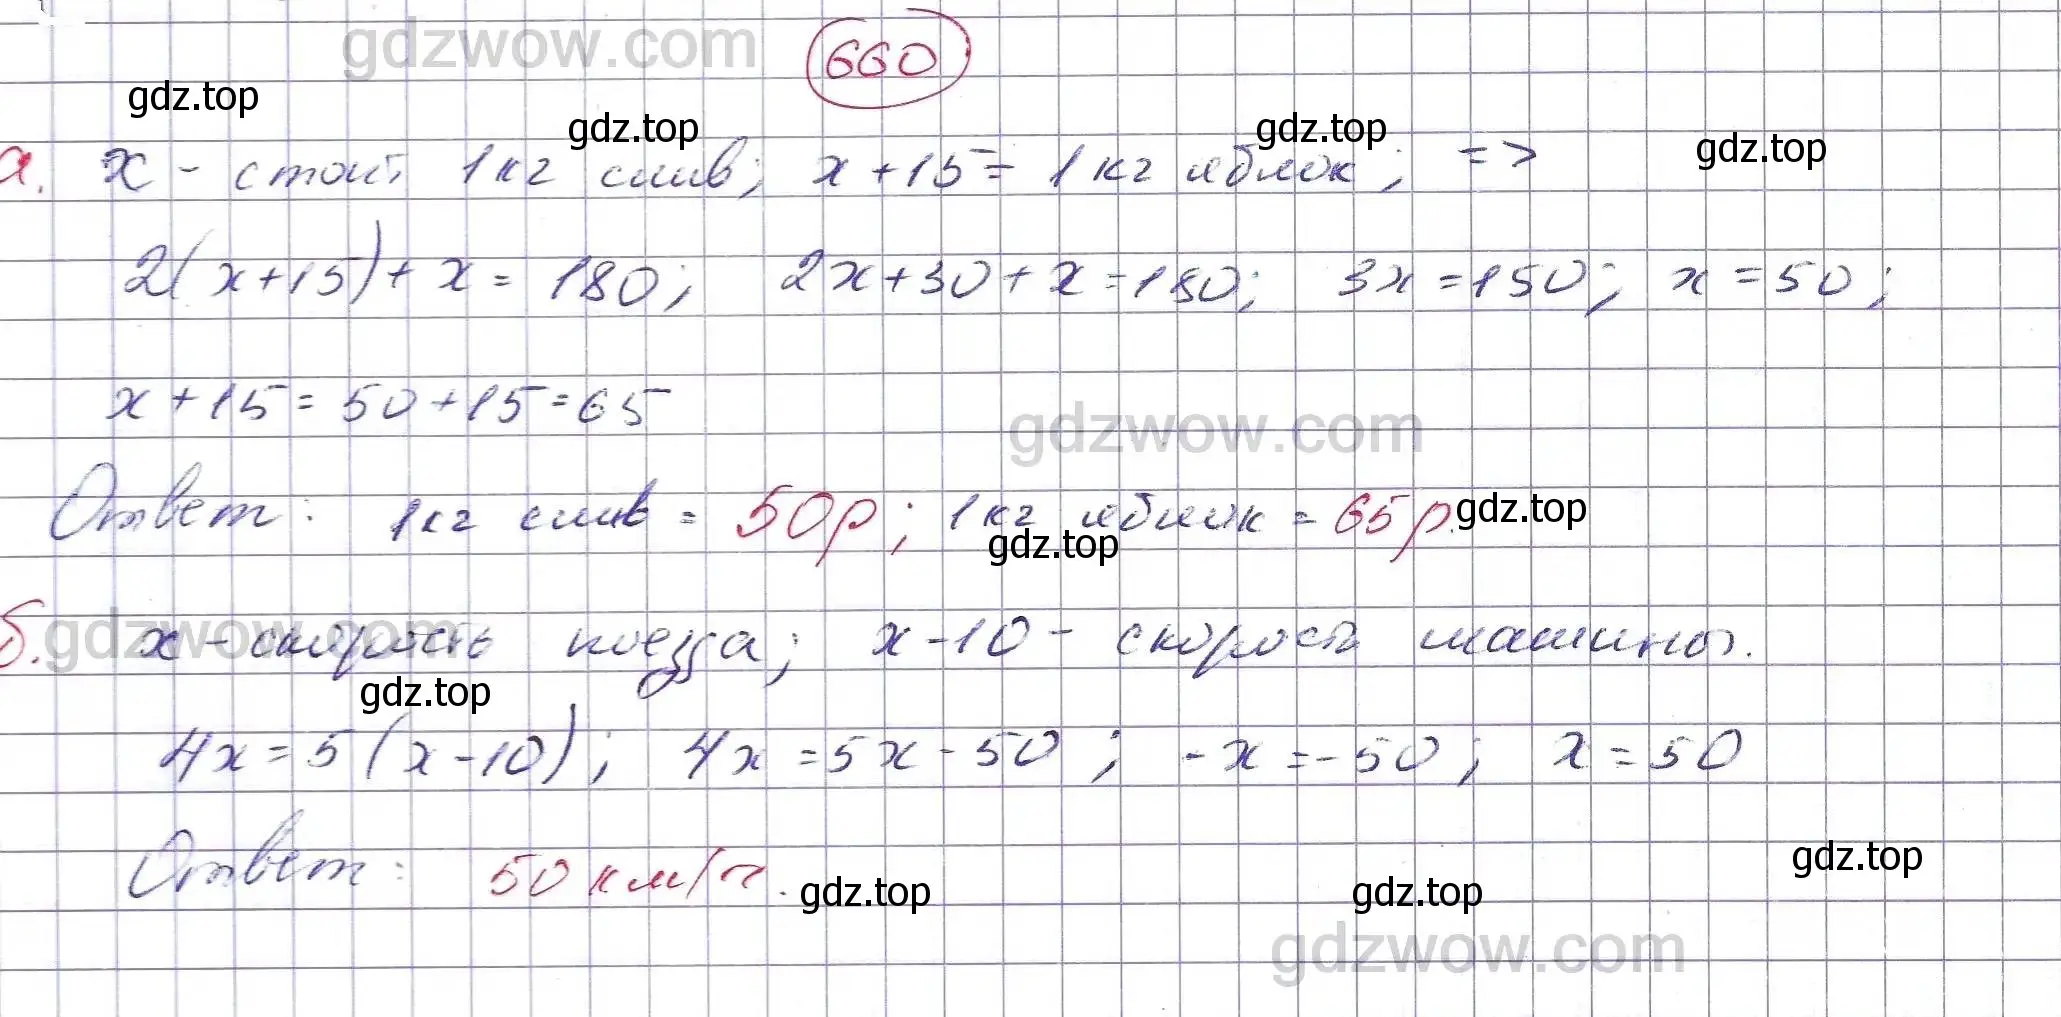 gdzwow.com
660
gdz.top
gdz.top gdz.top gdz.top
а. x - стоит 1 кг слив; x + 15 = 1 кг яблок; =>
2(x+15)+x = 180; 2x+30+x=180; 3x=150; x=50;
x+15=50+15=65
gdzwow.com
Ответ: 1кг слив = 50р; 1кг яблок = 65р.
gdz.top
gdz.top
gdzwow.com
б. x - скорость поезда; x-10 - скорость машины.
gdz.top
4x=5(x-10); 4x=5x-50; -x=-50; x=50
Ответ: 50 км/ч.
gdz.top gdz.top gdz.top
gdzwow.com